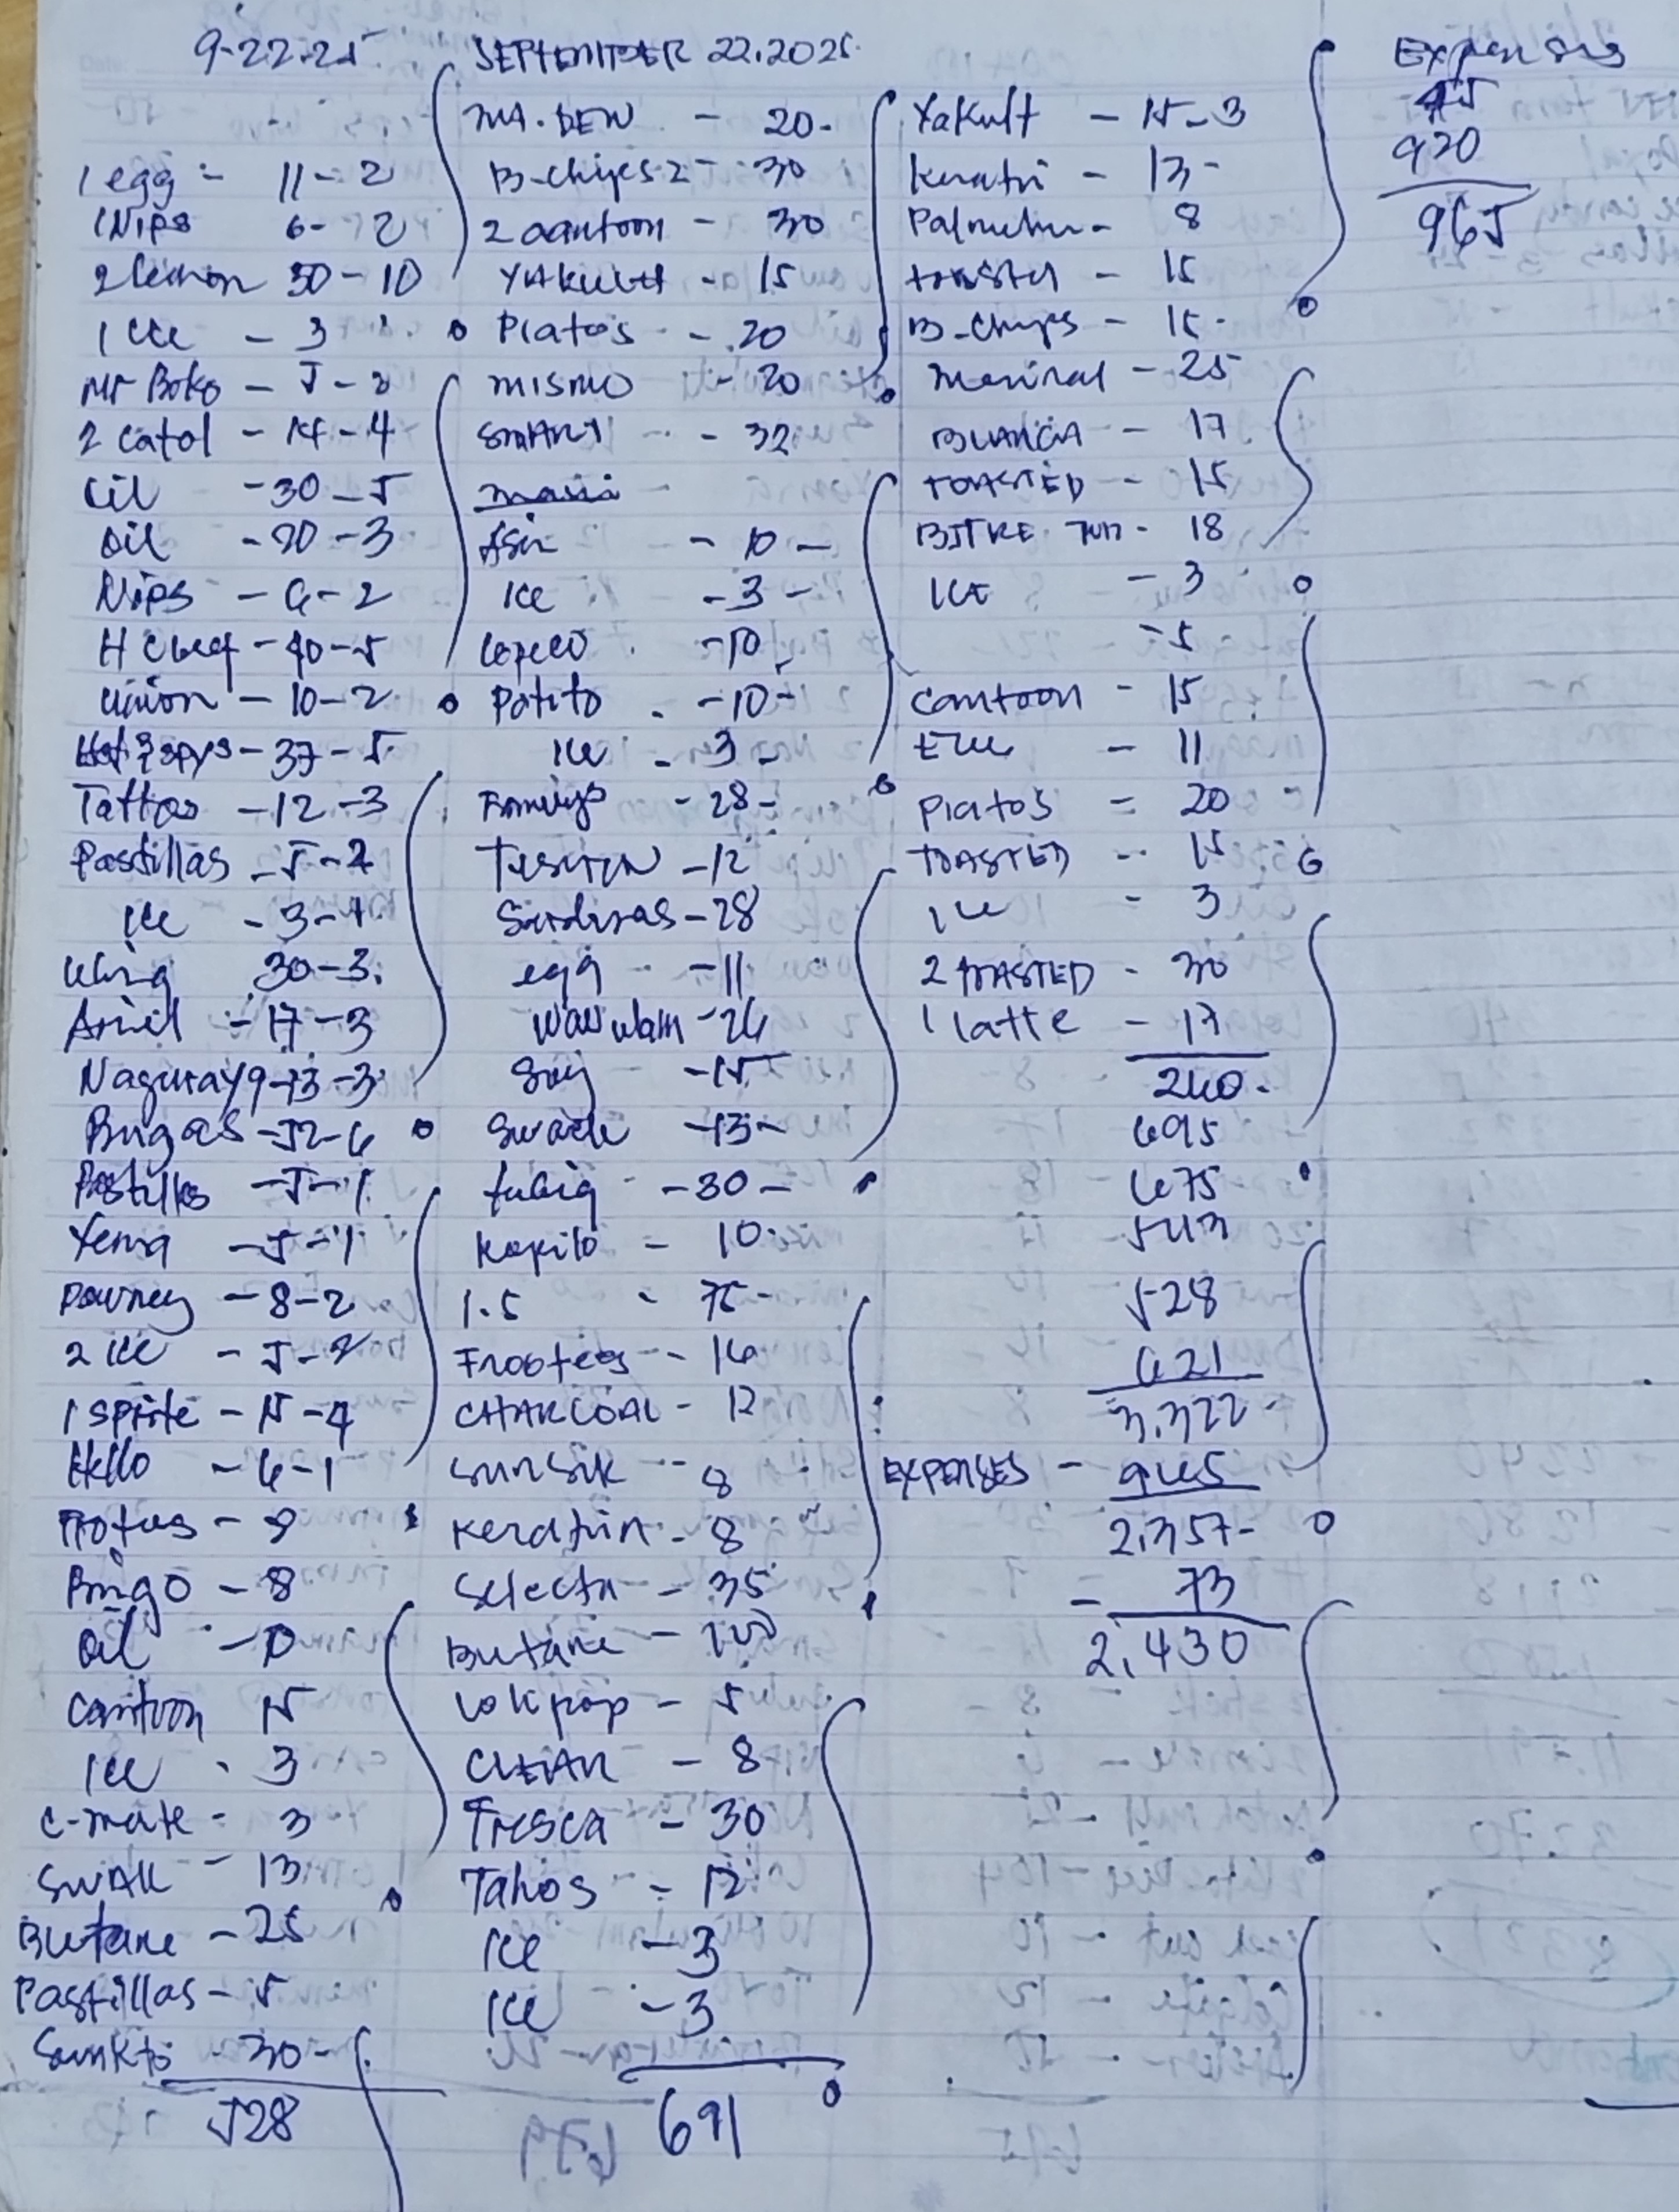 9-22-25
1 egg - 11-2
1 Nips 6-2
2 lemon 30-10
1 Ice - 3
Mr Boko - 5-
2 Catol - 14-4
Oil -30-5
Oil -20-3
Nips - 6-2
- 40-5
Union - 10-2
- 37-5
Tattoo -12-3
Pastillas -5-2
Ice -3-1
30-3
Ariel -17-3
Nagaraya 9-13-3
Bugas -52-6
Pastillas -5-1
Yema -5-1
Downey -8-2
2 Ice -5-2
1 Sprite -15-4
Hello -6-1
- 9
Bingo - 8
Oil -10
Cantoon 15
Ice - 3
C-mate - 3
SWAK - 13
Butane - 25
Pastillas - 5
-30-
528
SEPTEMBER 22.2025
MT. DEW - 20-
B-Chips 2 - 30
2 cantoon - 30
YAKULT - 15
Piatos - 20
MISMO - 20
SMART - 32
Asin - 10 -
Ice - 3 -
-10
Potito - -10-
Ice - 3 -
-28-
-12
Sardinas -28
egg - -11
-26
Soy -15
-13-
tubig -30-
Kopiko - 10-
1.5 - 75-
Frootees - 16
CHARCOAL - 12
SUNSILK - 8
Keratin - 8
Selecta - 35
Butane -
Lolipop - 5
CLEAR - 8
Fresca - 30
Tahos - 12
Ice - 3
Ice - 3
691
Yakult - 15-3
Keratin - 13-
Palmolive - 8
toasted - 15
B-Chips - 15-
Meniral - 25
BLANCA - 17
TOASTED - 15
- 18
ICE - 3
-5
Cantoon - 15
- 11
Piatos - 20
TOASTED - 15
Ice - 3
2 TOASTED - 30
1 latte - 17
260-
695
675
543
528
621
3,322-
EXPENSES - 965
2,357-
- 73
2,430
Expenses
45
920
965